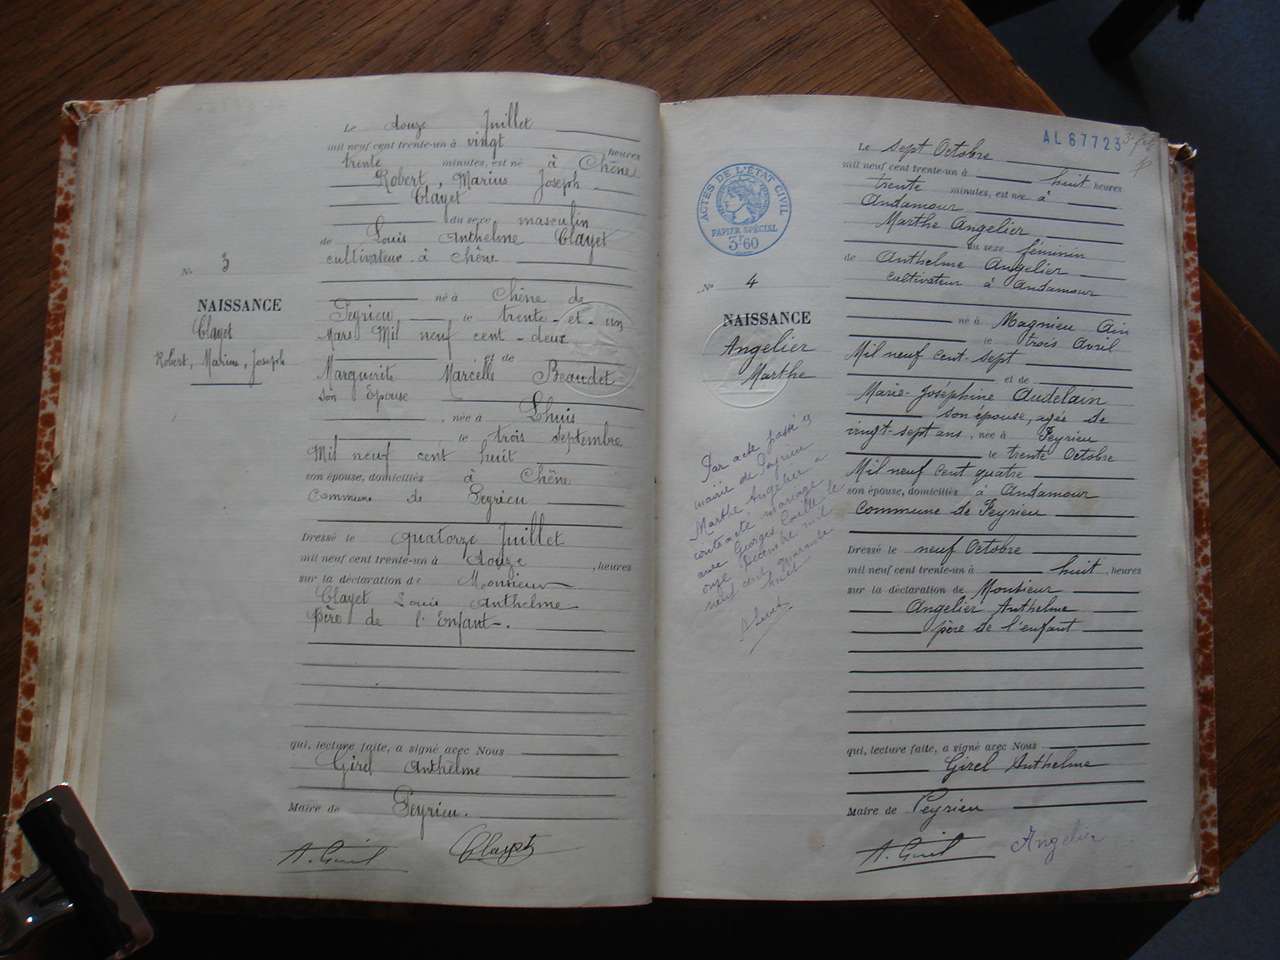 Le douze Juillet
mil neuf cent trente-un à vingt heures
trente minutes, est né à Chêne
Robert, Marius Joseph
Clayet
du sexe masculin
de Louis Anthelme Clayet
cultivateur à Chêne
N° 3
NAISSANCE
Clayet
Robert, Marius, Joseph
né à Chêne de
Peyrieu le trente-et-un
Mars Mil neuf cent-deux
et de
Marguerite Marcelle Beaudet
son Epouse
, née à Lhuis
, le trois septembre
Mil neuf cent huit
son épouse, domiciliés à Chêne
Commune de Peyrieu
Dressé le quatorze Juillet
mil neuf cent trente-un à douze heures
sur la déclaration de Monsieur
Clayet Louis Anthelme
Père de l'Enfant.
qui, lecture faite, a signé avec Nous
Girel Anthelme
Maire de Peyrieu.
Clayet
AL 67723
ACTES DE L'ÉTAT CIVIL
PAPIER SPÉCIAL
3F60
Le sept Octobre
mil neuf cent trente-un à huit heures
trente minutes, est née à
Andamour
Marthe Angelier
du sexe féminin
de Anthelme Angelier
cultivateur à Andamour
N° 4
NAISSANCE
Angelier
Marthe
né à Magnieu Ain
le trois Avril
Mil neuf cent sept
et de
Marie-Joséphine Audelain
son épouse, agés de
vingt-sept ans, née à Peyrieu
le trente Octobre
Mil neuf cent quatre
son épouse, domiciliés à Andamour
Commune de Peyrieu
Par acte passé
mairie de Peyrieu
Marthe Angelier a
contracté mariage
avec Georges le
onze Décembre mil
neuf cent quarante
huit
Dressé le neuf Octobre
mil neuf cent trente-un à huit, heures
sur la déclaration de Monsieur
Angelier Anthelme
père de l'enfant
qui, lecture faite, a signé avec Nous
Girel Anthelme
Maire de Peyrieu
Angelier